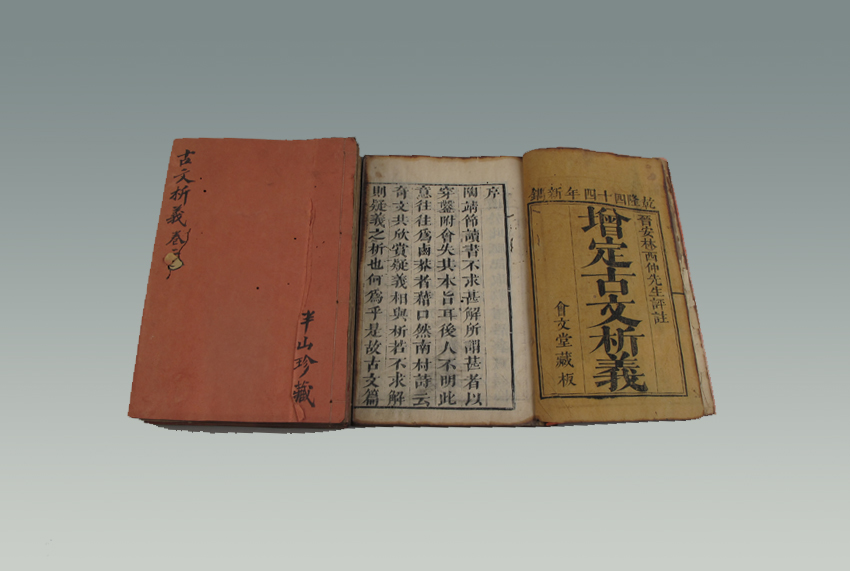 古文析義卷
半山珍藏
序
陶靖節讀書不求甚解所謂甚者以
穿鑿附會失其本旨耳後人不明此
意往往爲鹵莽者藉口然南村詩云
奇文共欣賞疑義相與析若不求解
則疑義之析也何爲乎是故古文篇
乾隆四十四年新鐫
晉安林西仲先生評註
增定古文析義
會文堂藏板